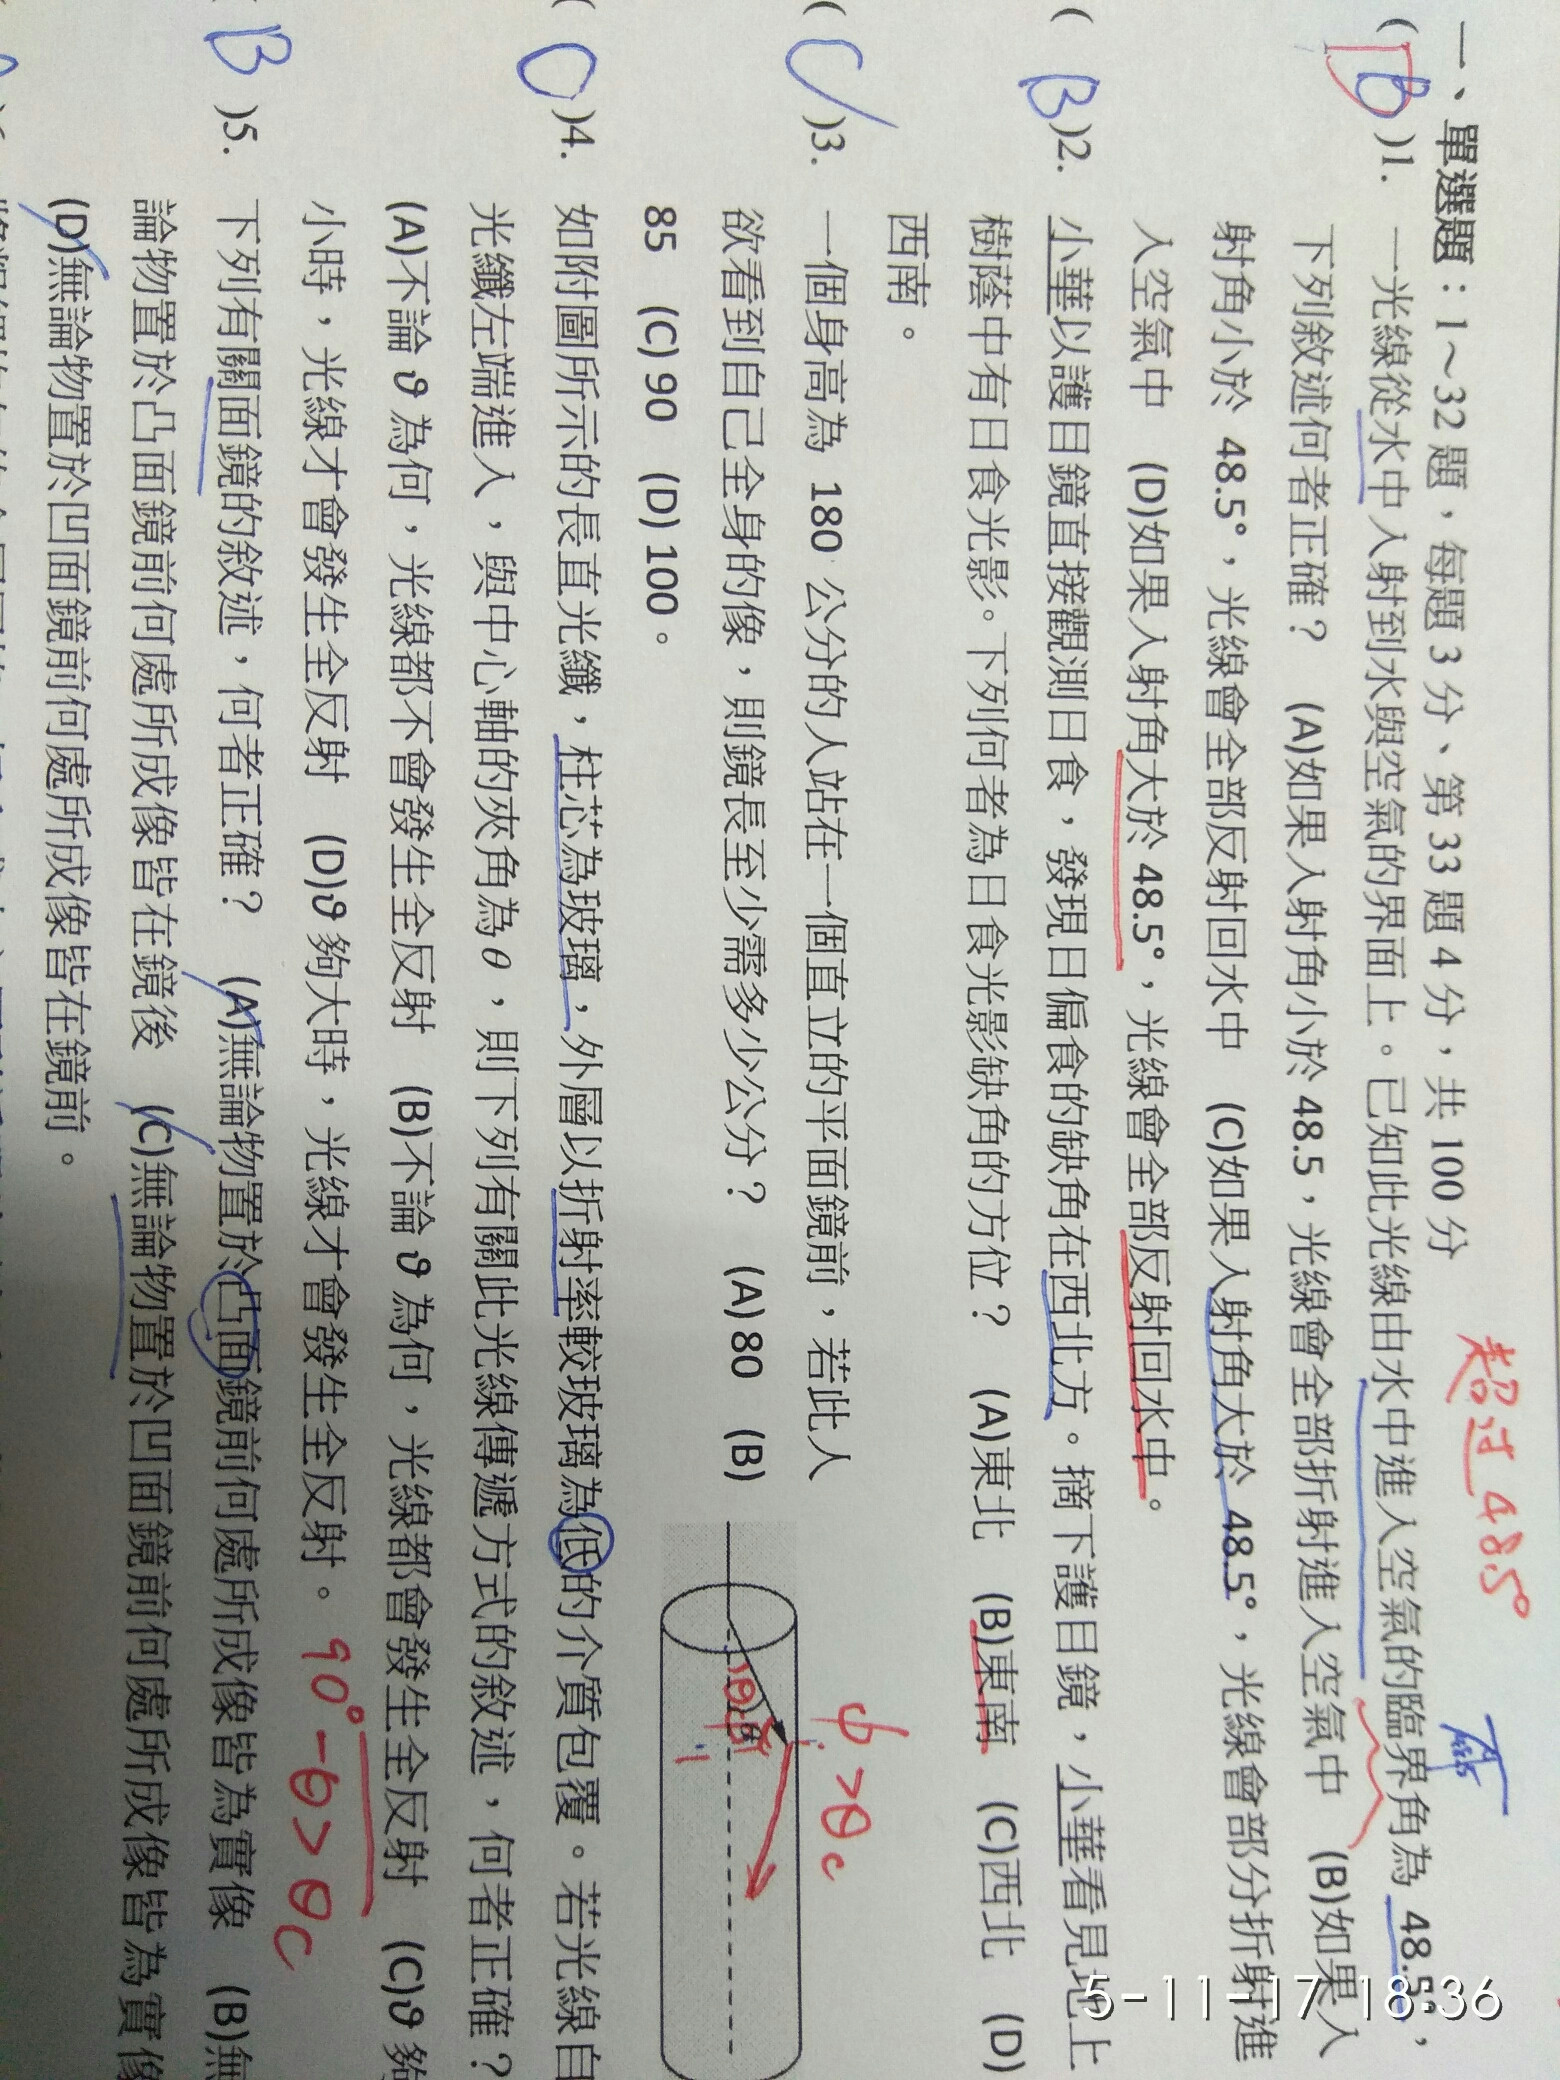 一、單選題：1～32 題，每題 3 分、第 33 題 4 分，共 100 分
超过 48.5°
(B)1. 一光線從水中入射到水與空氣的界面上。已知此光線由水中進入空氣的臨界角為 48.5°，
下列敘述何者正確？ (A)如果入射角小於 48.5，光線會全部折射進入空氣中 (B)如果入
射角小於 48.5°，光線會全部反射回水中 (C)如果入射角大於 48.5°，光線會部分折射進
入空氣中 (D)如果入射角大於 48.5°，光線會全部反射回水中。
(B)2. 小華以護目鏡直接觀測日食，發現日偏食的缺角在西北方。摘下護目鏡，小華看見地上
樹蔭中有日食光影。下列何者為日食光影缺角的方位？ (A)東北 (B)東南 (C)西北 (D)
西南。
(C)3. 一個身高為 180 公分的人站在一個直立的平面鏡前，若此人
欲看到自己全身的像，則鏡長至少需多少公分？ (A) 80 (B)
85 (C) 90 (D) 100。
ϕ>θc
θ
θ
(C)4. 如附圖所示的長直光纖，柱芯為玻璃，外層以折射率較玻璃為低的介質包覆。若光線自
光纖左端進入，與中心軸的夾角為θ，則下列有關此光線傳遞方式的敘述，何者正確？
(A)不論 θ 為何，光線都不會發生全反射 (B)不論 θ 為何，光線都會發生全反射 (C)θ 夠
小時，光線才會發生全反射 (D)θ 夠大時，光線才會發生全反射。
90°-θ>θc
(B)5. 下列有關面鏡的敘述，何者正確？ (A)無論物置於凸面鏡前何處所成像皆為實像 (B)無
論物置於凸面鏡前何處所成像皆在鏡後 (C)無論物置於凹面鏡前何處所成像皆為實像
(D)無論物置於凹面鏡前何處所成像皆在鏡前。
5-11-17 18:36